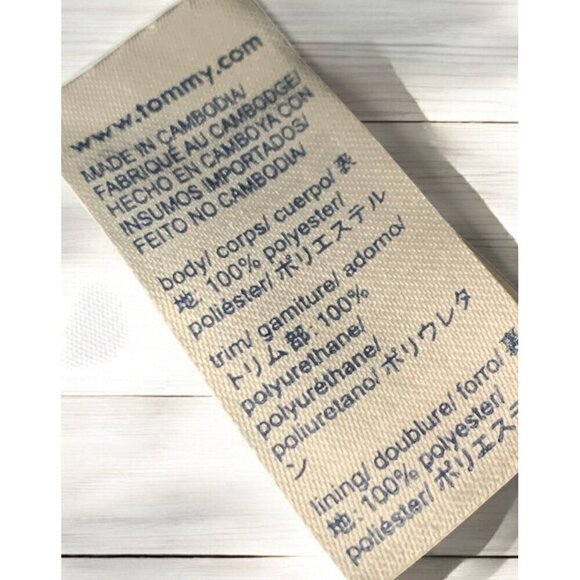 www.tommy.com
MADE IN CAMBODIA/
FABRIQUÉ AU CAMBODGE/
HECHO EN CAMBOYA CON
INSUMOS IMPORTADOS/
FEITO NO CAMBODIA/
body/ corps/ cuerpo/ 表
地: 100% polyester/
poliéster/ ポリエステル
trim/ garniture/ adorno/
トリム部: 100%
polyurethane/
polyuréthane/
poliuretano/ ポリウレタ
ン
lining/ doublure/ forro/ 裏
地: 100% polyester/
poliéster/ ポリエステル